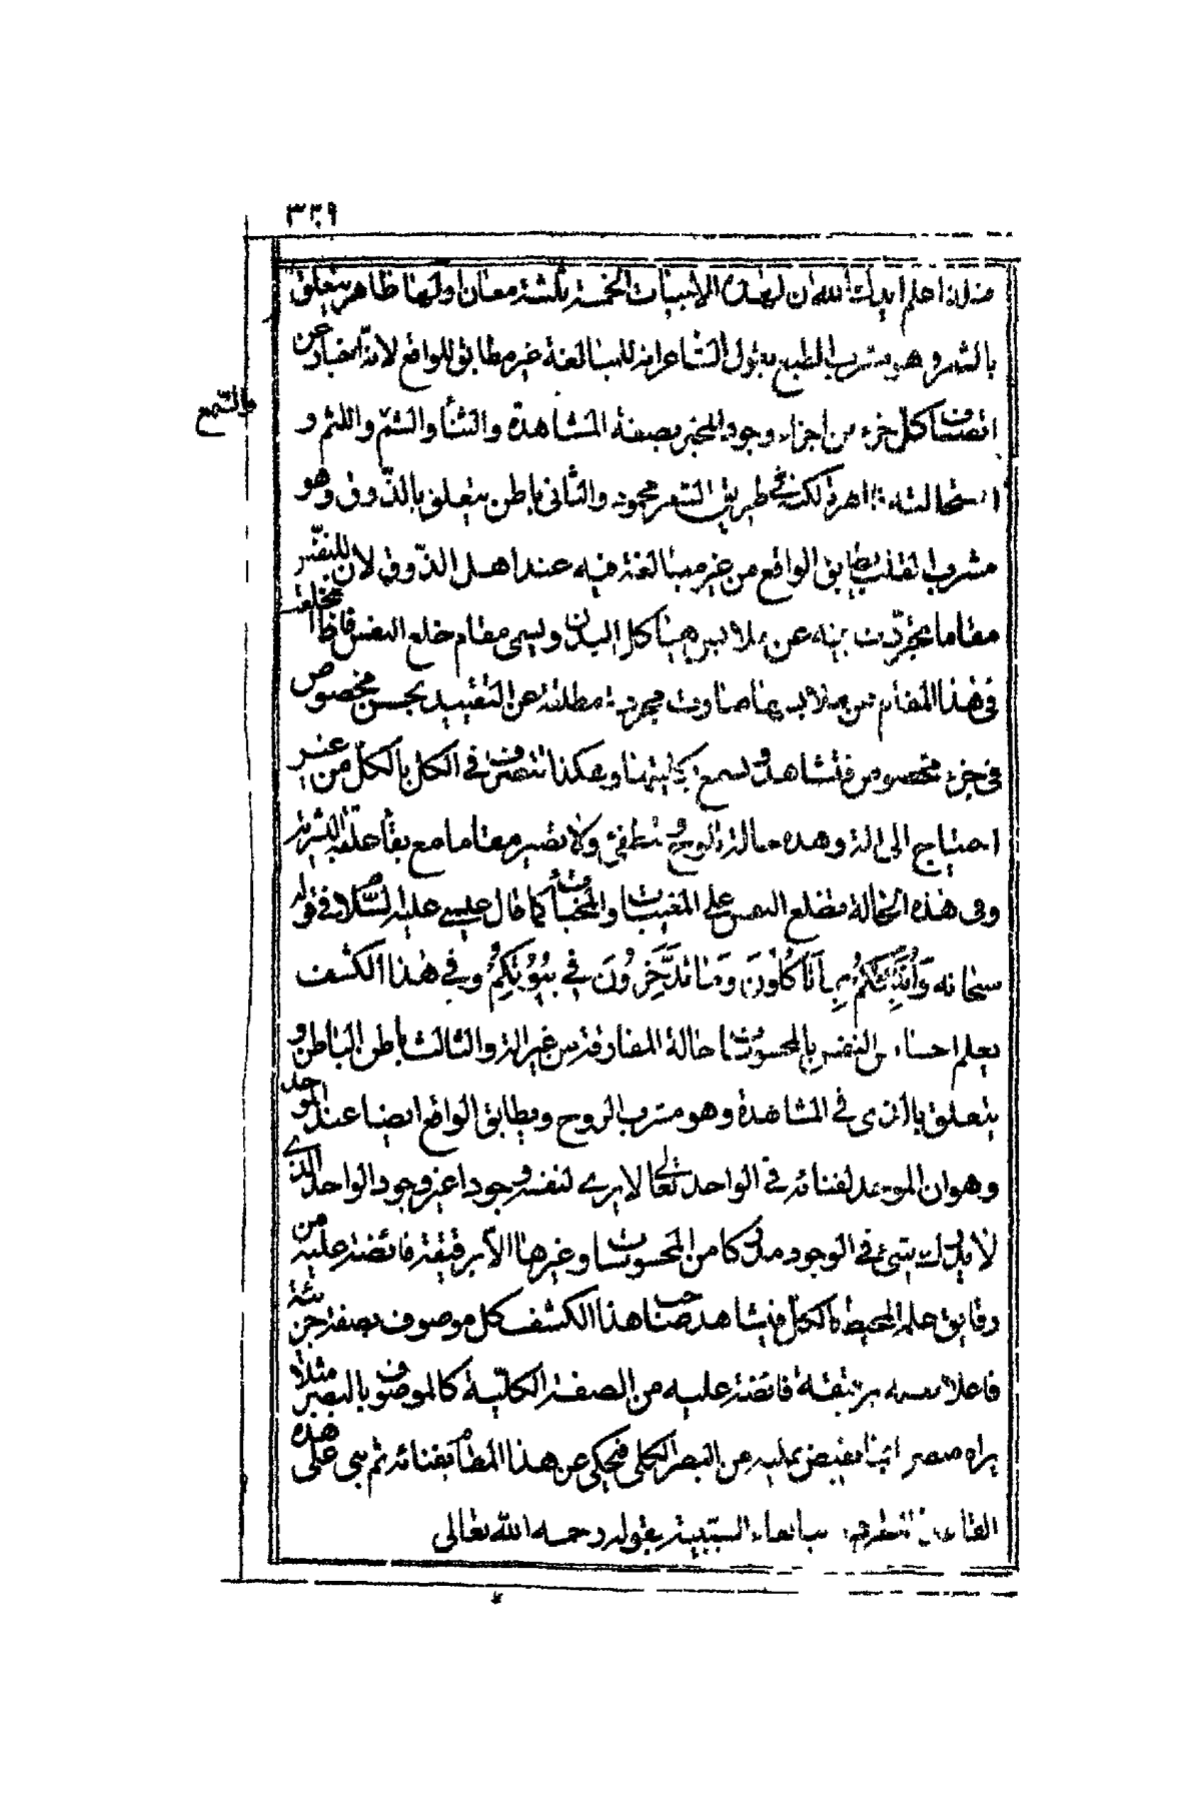 ٣٢٩
اعلم ايدك الله ان لهذه الابيات الخمسة ثلثة معان اولها ظاهر يتعلق
بالشعر و هو مشرب الطبع يقول الشاعر انه للمبالغة غير مطابق للواقع لانه اخبار عن
اتصاف كل جزء من اجزاء وجود المخبر بصفة المشاهدة والثنا والشم واللثم و
والسمع
استحالته ظاهرة لكنه في طريق الشعر محمود والثانى باطن يتعلق بالذوق وهو
مشرب القلب يطابق الواقع من غير مبالغة فيه عند اهل الذوق لان للنفس
مقاما تجردت فيه عن ملابس هياكل البدن ويسمى مقام خلع النفس فاذا انخلعت
في هذا المقام من ملابسها صارت مجردة مطلقة عن التقييد بحس مخصوص
في جزء مخصوص فتشاهد وتسمع بكليتها وهكذا تتصرف في الكل بالكل من غير
احتياج الى الة وهذه حالة تلوح و تنطفئ ولا تصير مقاما مع بقا علقة البشرية
وفى هذه الحالة تطلع النفس على المغيبات والمخبأت كما قال عيسى عليه السلام في قوله
سبحانه وَأُنَبِّئُكُمْ بِمَا تَأْكُلُونَ وَمَا تَدَّخِرُونَ فِي بُيُوتِكُمْ وفي هذا الكشف
يعلم احساس النفس بالمحسوسات حالة المفارقة من غير الة والثالث باطن الباطن و
يتعلق بالذى في المشاهدة وهو مشرب الروح ويطابق الواقع ايضا عند الموحد
وهو ان الموحد لفنائه في الواحد تعالى لا يرى لنفسه وجودا غير وجود الواحد الذى
لا يبقى في الوجود مدركا من المحسوسات وغيرها الا برقيقة فائضة عليه من
دقايق علمه المحيط بالكل فيشاهد صاحب هذا الكشف كل موصوف بصفة جزئية
فاعلا بنفسه برقيقة فائضة عليه من الصفة الكلية كالموصوف بالبصر مثلا
يراه مبصرا بما يفيض عليه من البصر الكلى فيحكى عن هذا المقام بفنائه ثم بنى على هذه
السببية بقوله رحمه الله تعالى